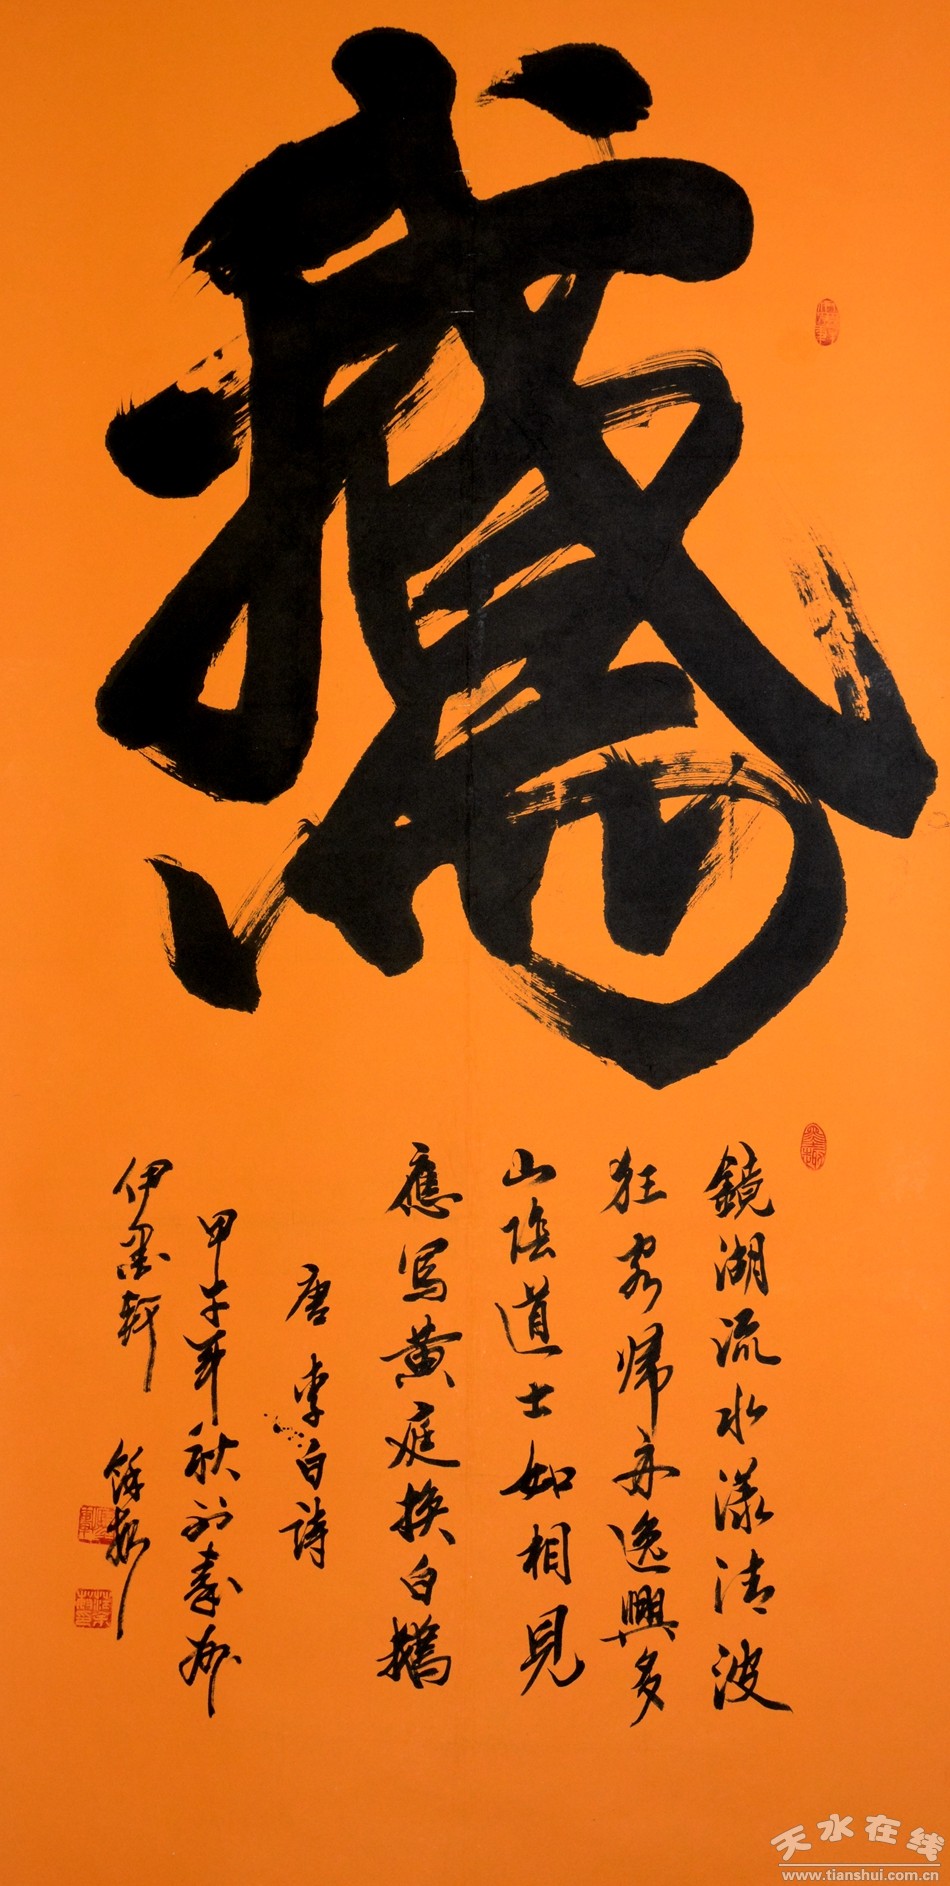 鵝
鏡湖流水漾清波
狂客帰舟逸興多
山陰道士如相見
應写黄庭换白鵝
唐李白詩
甲午年秋於秦州
伊墨軒
天水在线
www.tianshui.com.cn